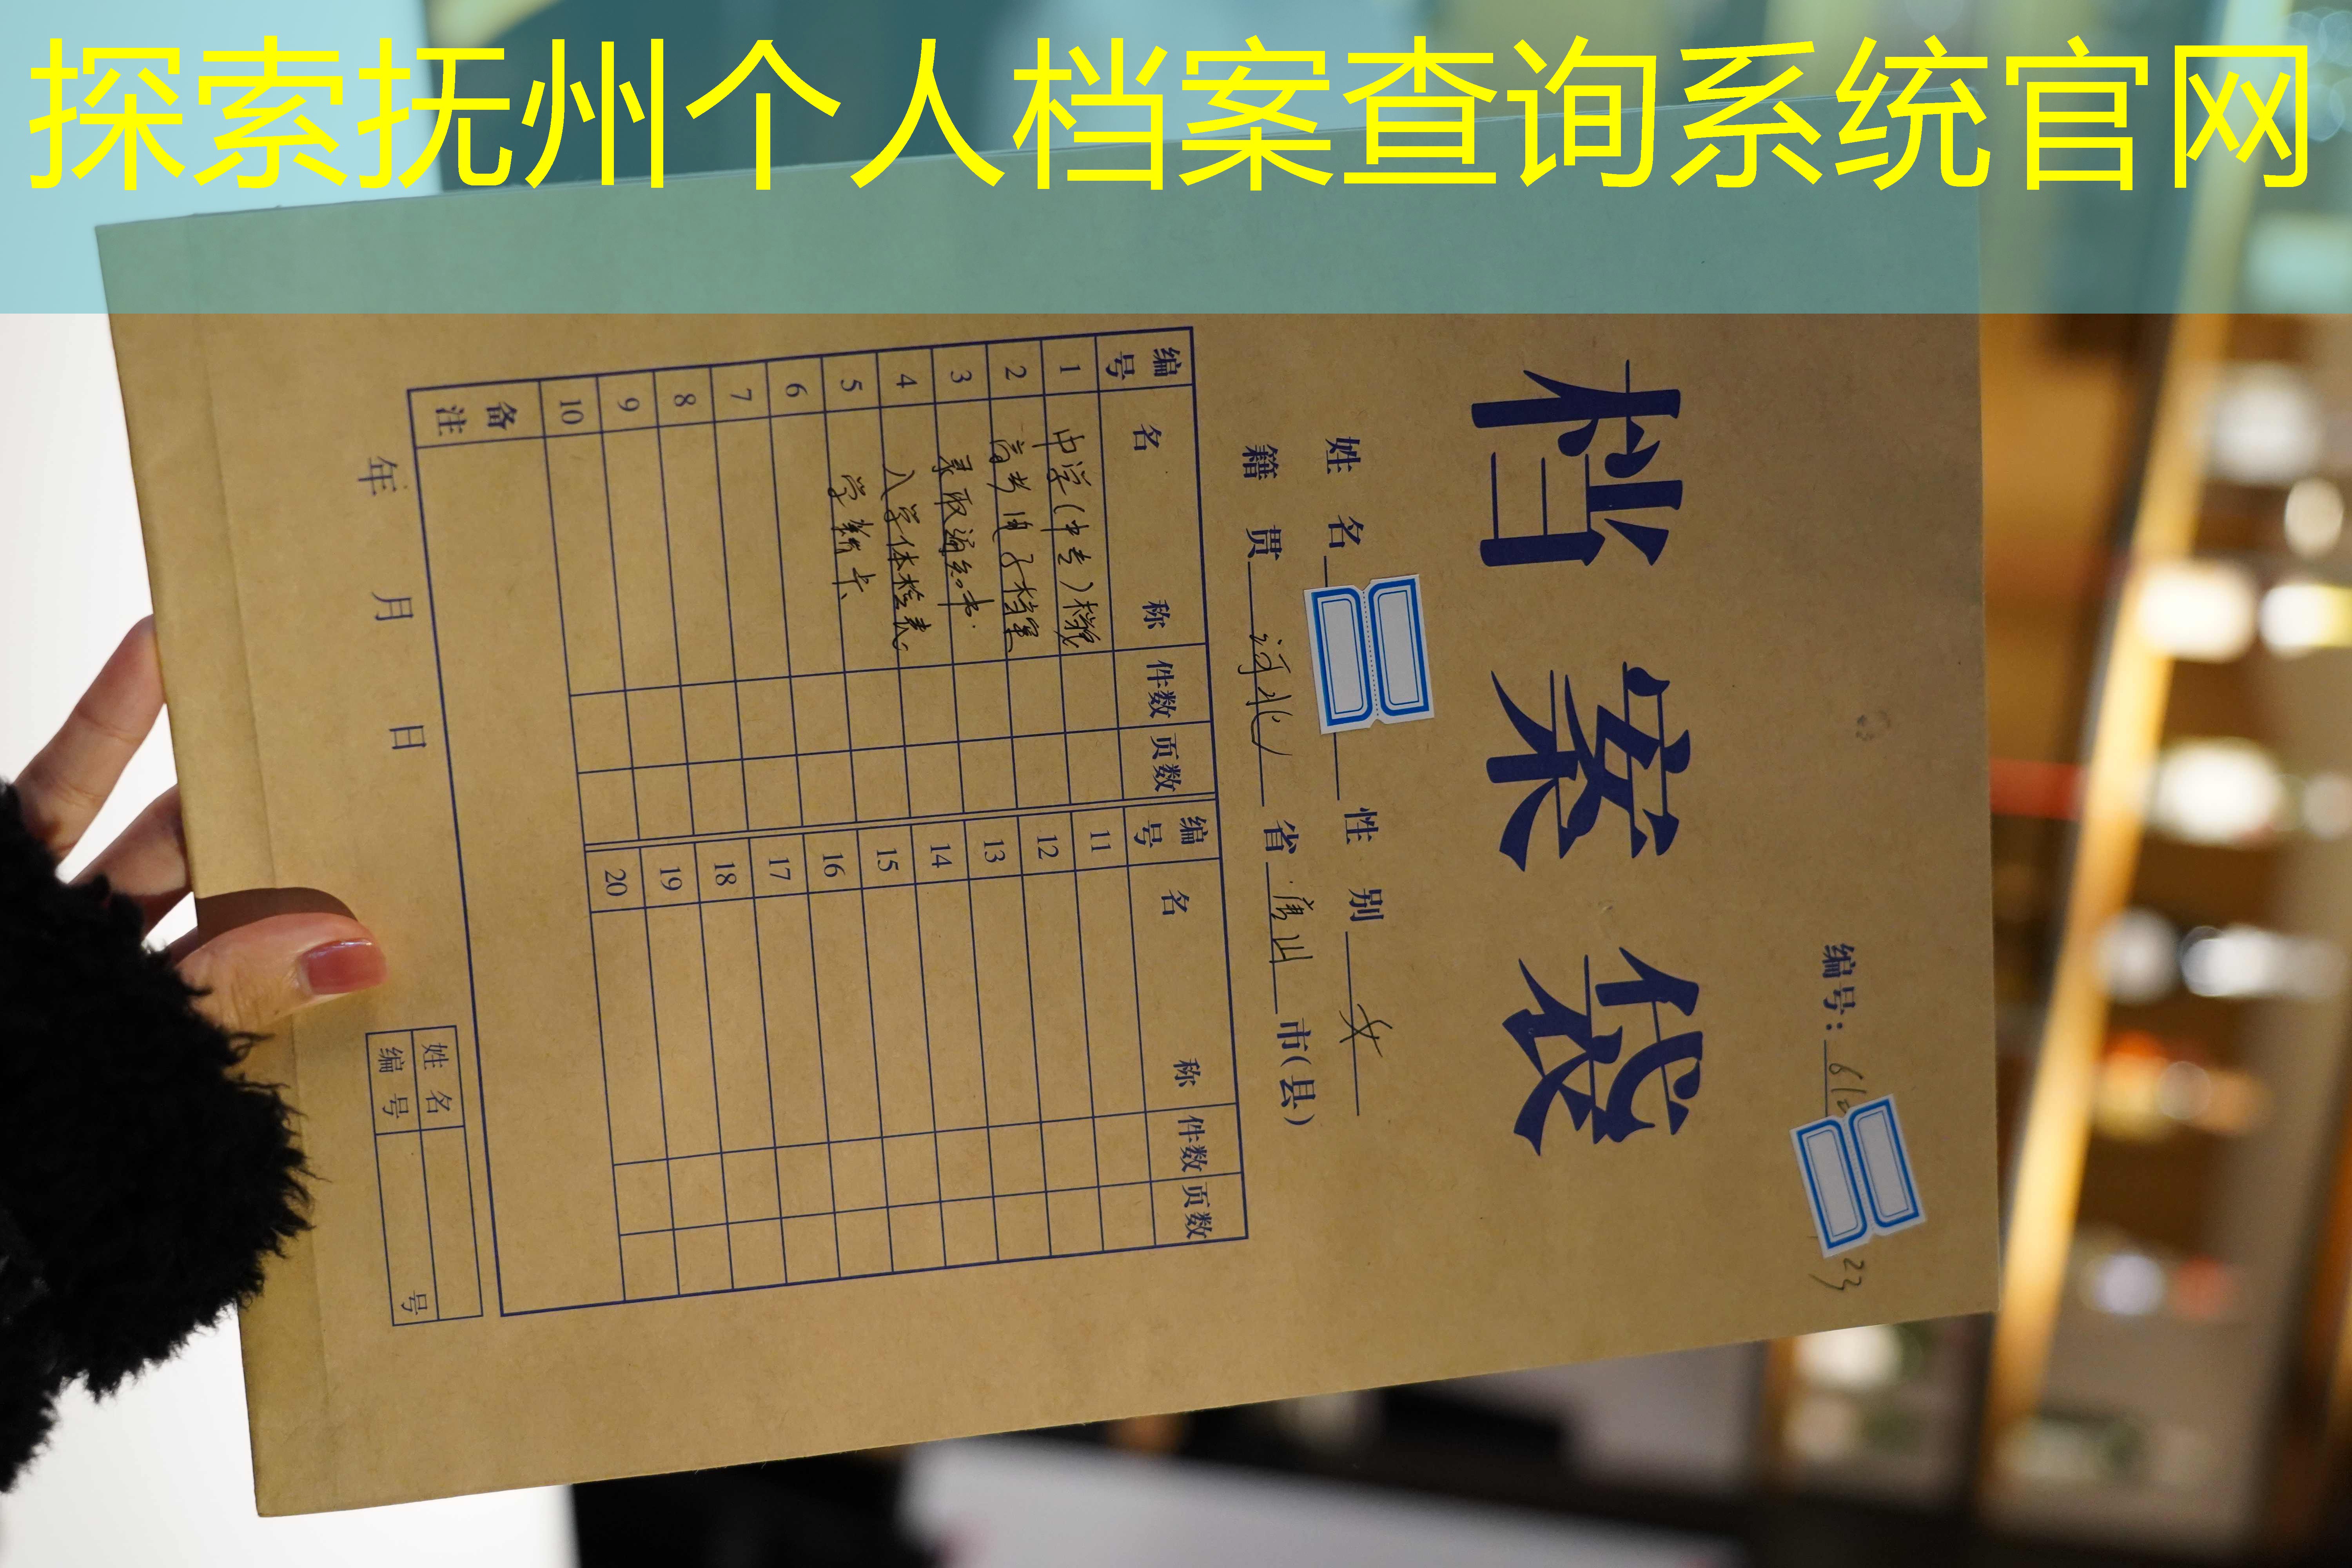 探索抚州个人档案查询系统官网
编号:
23
档案袋
姓名 性别 女
籍贯 河北 省 唐山 市(县)
编号 名称 件数 页数 编号 名称 件数 页数
1 中学(中专)档案 11
2 高考电子档案 12
3 录取通知书 13
4 入学体检表 14
5 学籍卡 15
6 16
7 17
8 18
9 19
10 20
备注
年 月 日
姓名
编号 号